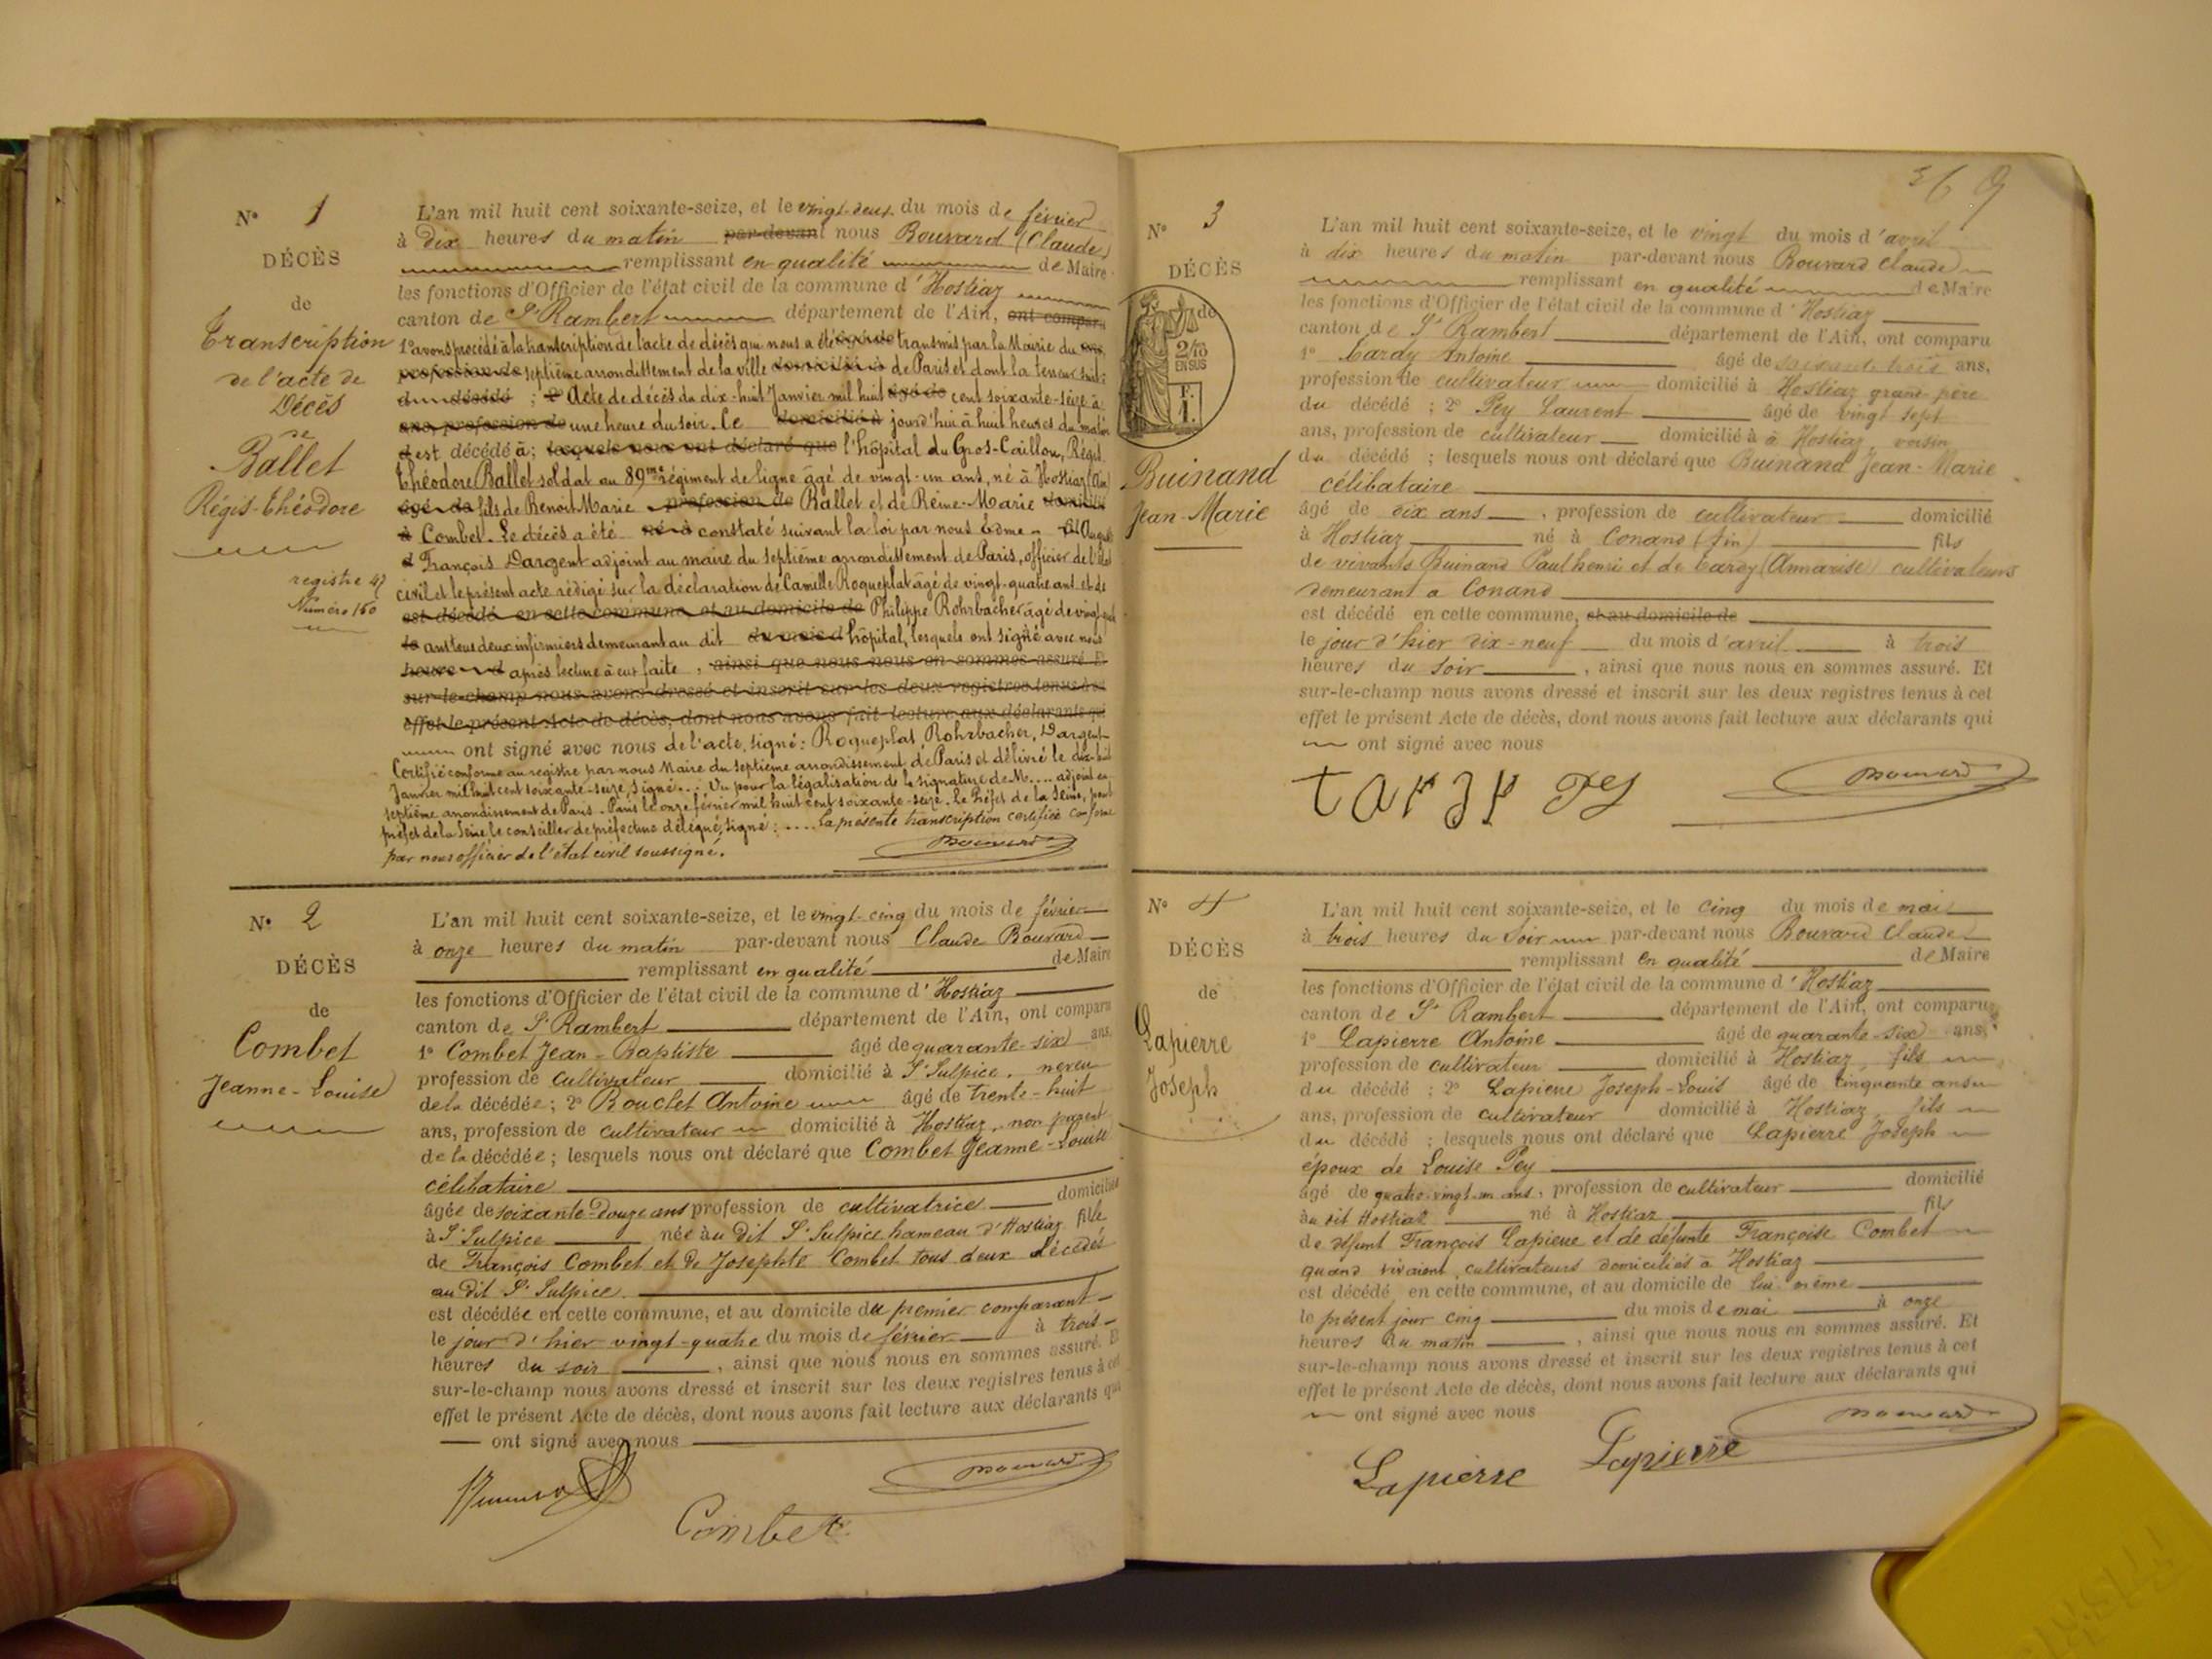 N° 1
DÉCÈS
de
Transcription
de l'acte de
Décès
de
Ballet
Régis-Théodore
registre 47
Numéro 160
L'an mil huit cent soixante-seize, et le vingt-deux du mois de février
à dix heures du matin par-devant nous Bouvard (Claude)
remplissant en qualité de Maire
les fonctions d'Officier de l'état civil de la commune d'Hostiaz
canton de St Rambert département de l'Ain, ont comparu
1° avons procédé à la transcription de l'acte de décès qui nous a été transmis par la Mairie du
profession de septième arrondissement de la ville domicilié à de Paris et dont la teneur suit :
du décédé ; 2° Acte de décès du dix-huit Janvier mil huit âgé de cent soixante-seize à
ans, profession de une heure du soir. Ce domicilié à jourd'hui à huit heures du matin
est décédé à ; lesquels nous ont déclaré que l'hôpital du Gros-Caillou, Régis
Théodore Ballet soldat au 89me régiment de ligne âgé de vingt-un ans, né à Hostiaz (Ain)
âgé de fils de Benoit Marie profession de Ballet et de Reine-Marie domicilié
à Combet. Le décès a été né à constaté suivant la loi par nous Edme
François Dargent adjoint au maire du septième arrondissement de Paris, officier de l'état
civil et le présent acte rédigé sur la déclaration de Camille Roqueplat âgé de vingt-quatre ans et de
est décédé en cette commune, et au domicile de Philippe Rohrbacher âgé de vingt
le ans tous deux infirmiers demeurant au dit du mois d hôpital, lesquels ont signé avec nous
heure d après lecture à eux faite , ainsi que nous nous en sommes assuré. Et
sur-le-champ nous avons dressé et inscrit sur les deux registres tenus à cet
effet le présent Acte de décès, dont nous avons fait lecture aux déclarants qui
ont signé avec nous de l'acte, signé : Roqueplat, Rohrbacher, Dargent
Certifié conforme au registre par nous Maire du septième arrondissement de Paris et délivré le dix-huit
Janvier mil huit cent soixante-seize, signé... Vu pour la légalisation de la signature de M.... adjoint au
septième arrondissement de Paris. Paris le onze février mil huit cent soixante-seize. Le Préfet de la Seine, pour
préfet de la Seine le conseiller de préfecture délégué, signé : .... La présente transcription certifiée conforme
par nous officier de l'état civil soussigné.
Bouvard
N° 2
DÉCÈS
de
Combet
Jeanne-Louise
L'an mil huit cent soixante-seize, et le vingt-cinq du mois de février
à onze heures du matin par-devant nous Claude Bouvard
remplissant en qualité de Maire
les fonctions d'Officier de l'état civil de la commune d'Hostiaz
canton de St Rambert département de l'Ain, ont comparu
1° Combet Jean-Baptiste âgé de quarante-six ans.
profession de cultivateur domicilié à St Sulpice. neveu
de la décédée ; 2° Bouclet Antoine âgé de trente-huit
ans, profession de cultivateur domicilié à Hostiaz, non parent
de la décédée ; lesquels nous ont déclaré que Combet Jeanne-Louise
célibataire
âgée de soixante-douze ans profession de cultivatrice domiciliée
à St Sulpice née au dit St Sulpice hameau d'Hostiaz fille
de François Combet et de Josephte Combet tous deux décédés
au dit St Sulpice
est décédée en cette commune, et au domicile du premier comparant
le jour d'hier vingt-quatre du mois de février à trois
heures du soir , ainsi que nous nous en sommes assuré. Et
sur-le-champ nous avons dressé et inscrit sur les deux registres tenus à cet
effet le présent Acte de décès, dont nous avons fait lecture aux déclarants qui
ont signé avec nous
Bouvard
Combet
369
N° 3
DÉCÈS
de
2/10
EN SUS
F.
1.
Buinand
Jean-Marie
L'an mil huit cent soixante-seize, et le vingt du mois d'avril
à dix heures du matin par-devant nous Bouvard Claude
remplissant en qualité de Maire
les fonctions d'Officier de l'état civil de la commune d'Hostiaz
canton de St Rambert département de l'Ain, ont comparu
1° Tardy Antoine âgé de soixante trois ans,
profession de cultivateur domicilié à Hostiaz grand père
du décédé ; 2° Pey Laurent âgé de vingt sept
ans, profession de cultivateur domicilié à à Hostiaz, voisin
du décédé ; lesquels nous ont déclaré que Buinand Jean-Marie
célibataire
âgé de dix ans , profession de cultivateur domicilié
à Hostiaz né à Conand (Ain) fils
de vivants Buinand Paul henri et de Tardy (Annarise) cultivateurs
demeurant a Conand
est décédé en cette commune, et au domicile de
le jour d'hier dix-neuf du mois d'avril à trois
heures du soir , ainsi que nous nous en sommes assuré. Et
sur-le-champ nous avons dressé et inscrit sur les deux registres tenus à cet
effet le présent Acte de décès, dont nous avons fait lecture aux déclarants qui
ont signé avec nous
tardy Pey Bouvard
N° 4
DÉCÈS
de
Lapierre
Joseph
L'an mil huit cent soixante-seize, et le cinq du mois de mai
à trois heures du Soir par-devant nous Bouvard Claude
remplissant en qualité de Maire
les fonctions d'Officier de l'état civil de la commune d'Hostiaz
canton de St Rambert département de l'Ain, ont comparu
1° Lapierre Antoine âgé de quarante-six ans,
profession de cultivateur domicilié à Hostiaz, fils
du décédé ; 2° Lapierre Joseph-Louis âgé de cinquante ans
ans, profession de cultivateur domicilié à Hostiaz, fils
du décédé ; lesquels nous ont déclaré que Lapierre Joseph
époux de Louise Pey
âgé de quatre-vingt-un ans, profession de cultivateur domicilié
au dit Hostiaz né à Hostiaz fils
de défunt François Lapierre et de défunte Françoise Combet
quand vivaient cultivateurs domiciliés à Hostiaz
est décédé en cette commune, et au domicile de lui-même
le présent jour cinq du mois de mai à onze
heures du matin , ainsi que nous nous en sommes assuré. Et
sur-le-champ nous avons dressé et inscrit sur les deux registres tenus à cet
effet le présent Acte de décès, dont nous avons fait lecture aux déclarants qui
ont signé avec nous
Bouvard
Lapierre Lapierre